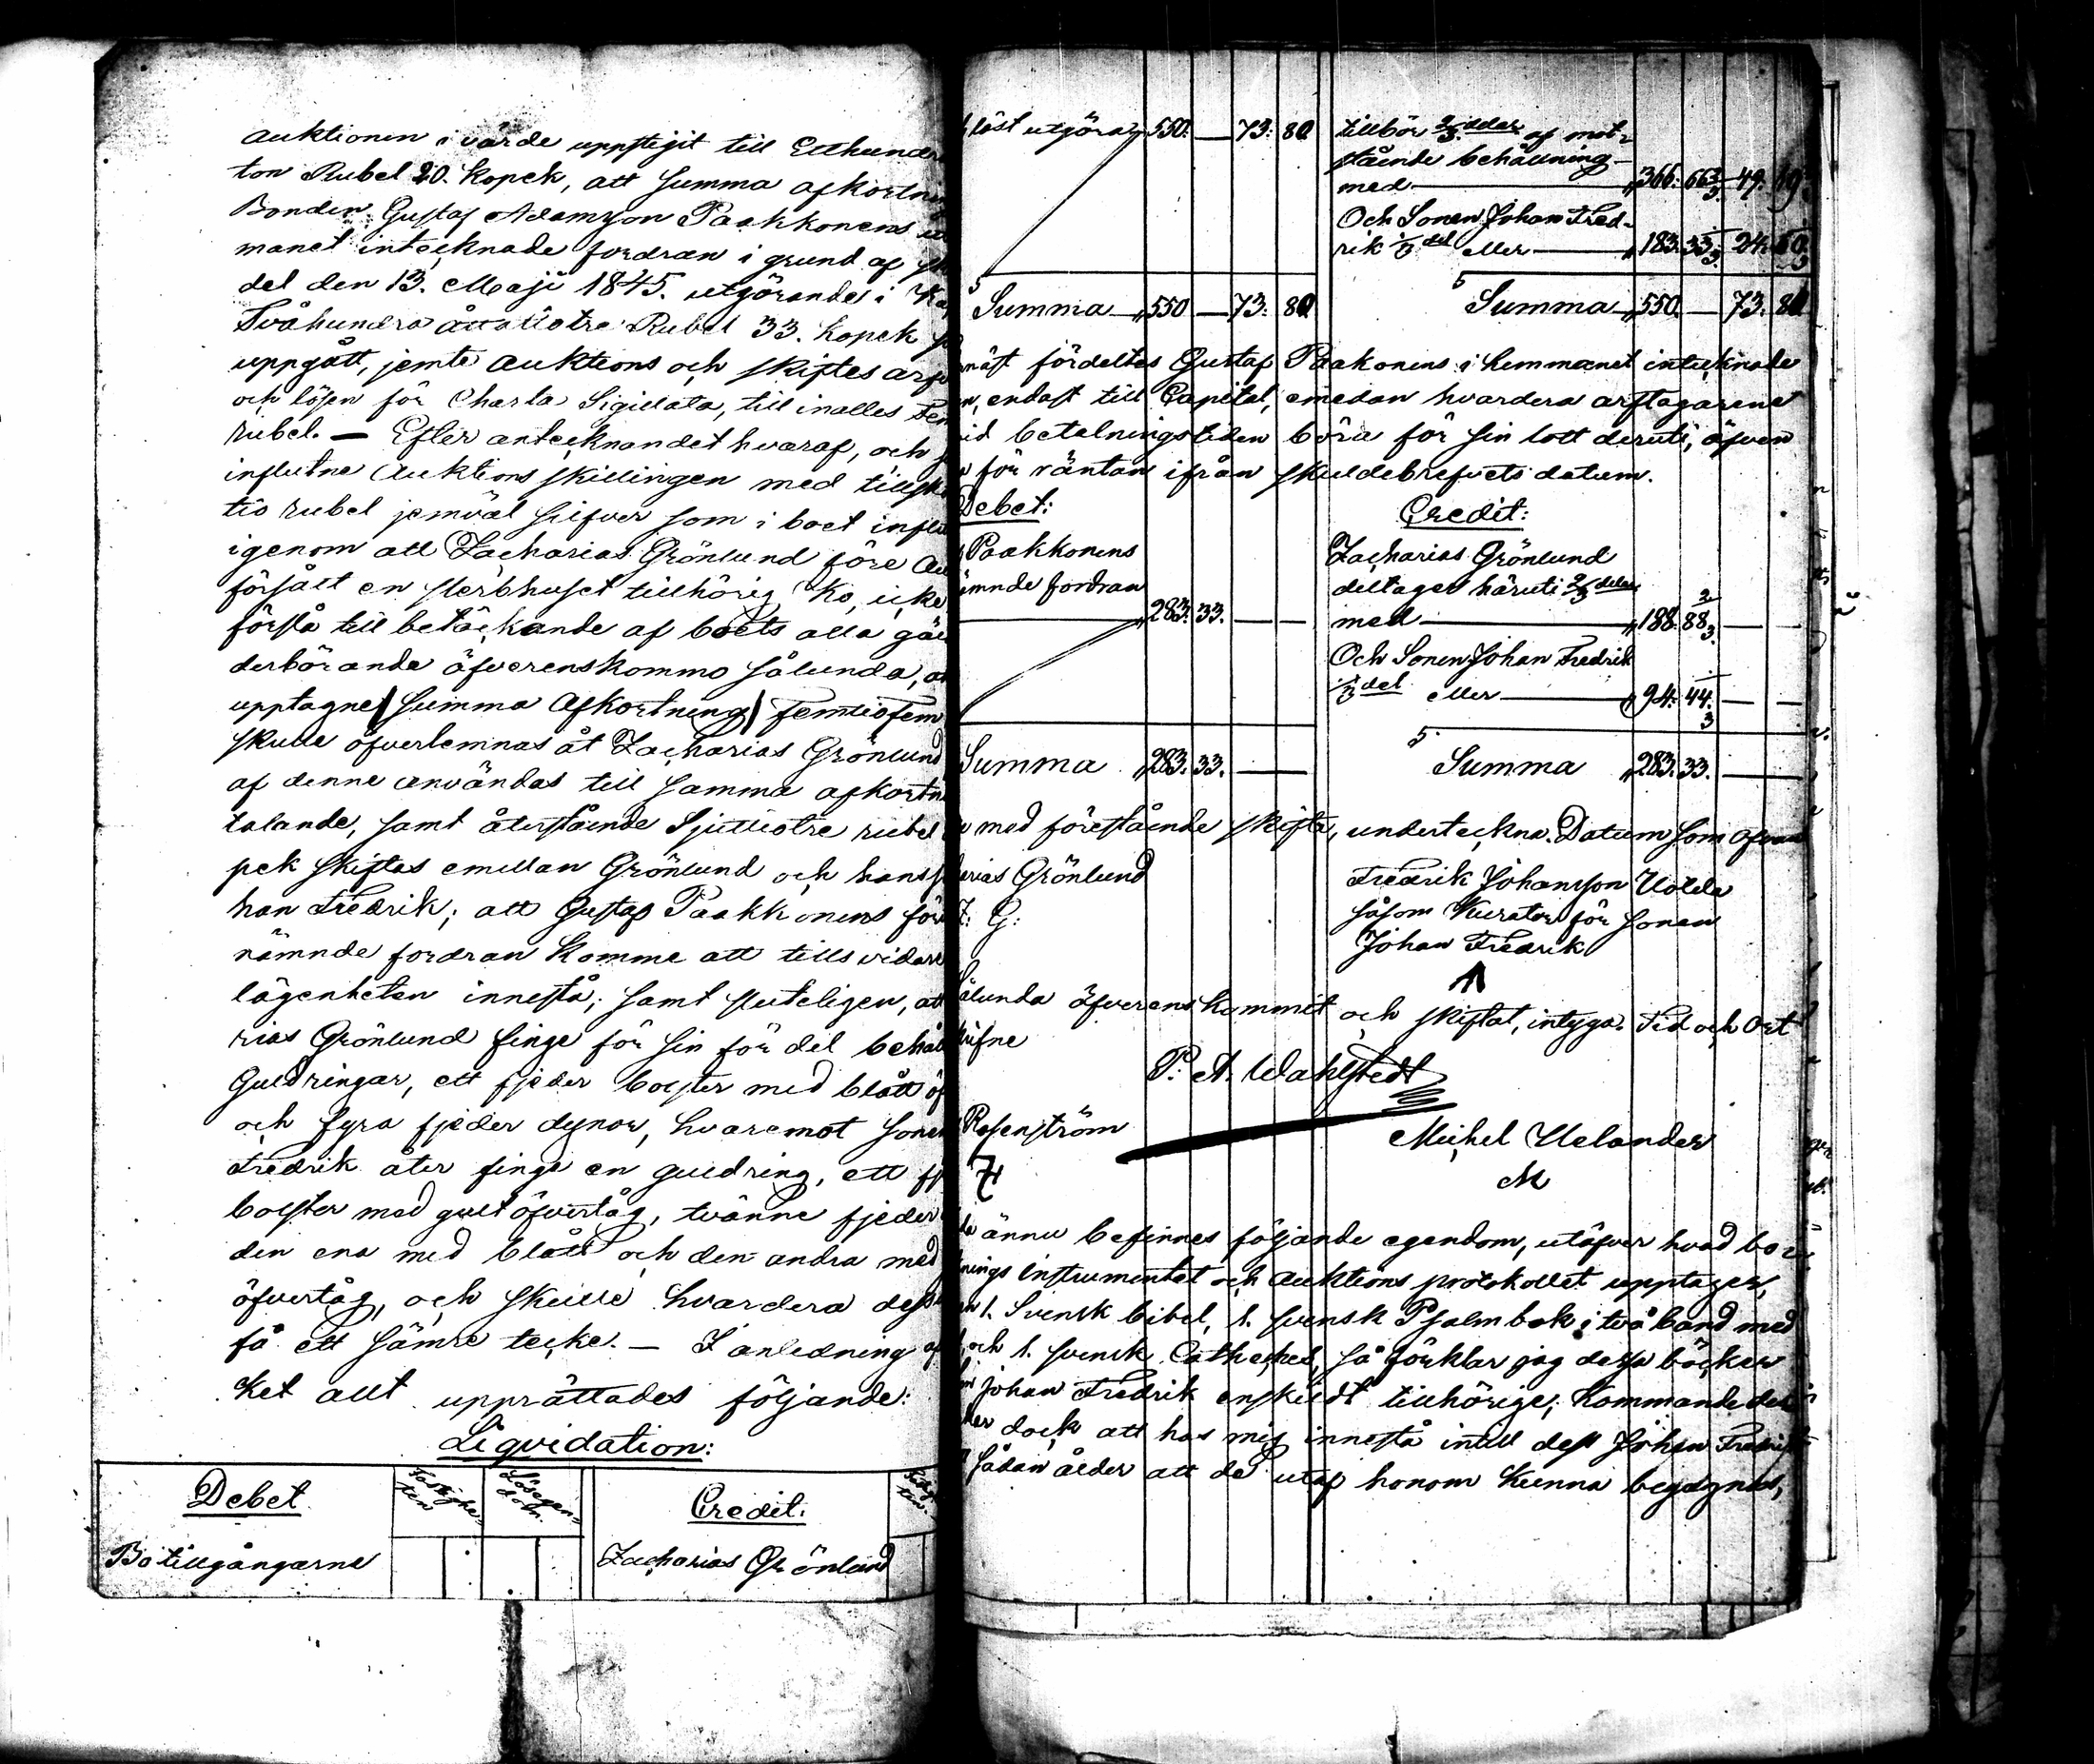 auktionen i värde uppstigit till Etthundra
ton Rubel 20. Kopek, att summa afkortnin
Bonden Gustaf Adamsson Paakkonens
manet intecknade fordran i grund af
del den 13. Maji 1845. utgörande i Ka
Tvåhundra åttatiotre Rubel 33. Kopek
uppgått, jemte auktions och skiftes arf
och lösen för Charta Sigillata, till inalles Fem
rubel. — Efter antecknandet hvaraf, och
influtne Auktions skillingen med tillsk
tio rubel jemväl silfver som i boet influ
igenom att Zacharias Grönlund före Au
försålt en sterbhuset tillhörig Ko, icke
förslå till betäckande af boets alla gäl
derbörande öfverenskommo sålunda, at
upptagne/ summa Afkortning/ femtiofem
skulle öfverlemnas åt Zacharias Grönlund
af denne användas till samma afkortn
talande, samt återstående Sjuttiotre rubel
pek skiftas emellan Grönlund och hans
han Fredrik; att Gustaf Paakkonens för
nämnde fordran Komme att tills vidare
lägenheten innestå; samt sluteligen, att
rias Grönlund finge för sin för del behål
Guldringar, ett fjeder bolster med blått öf
och fyra fjeder dynor, hvaremot sonen
Fredrik åter finge en guldring, ett fj
bolster med gult öfvertåg, tvänne fjeder
den ena med blått och den andra med
öfvertåg, och skulle hvardera dess
få ett sämre tecke. — I anledning af
ket allt upprättades följande:
Liqvidation:
Debet Fastighe-ten Lösegen-dom. Credit:
Bo tillgångarne Zacharias Grönlund
löst utgöra 550. — 73: 80 tillbör 2/3 delar af mot-
stående behållning
med 366. 66 2/3 49.
Och Sonen Johan Fred-
rik 1/3 del eller 183. 33 1/3 24. 60.
Summa 550 — 73: 80 Summa 550. — 73: 80
näst fördeltes Gustaf Paakonens i hemmanet intecknade
n, endast till Capital, emedan hvardera arftagarene
id betalningstiden böra för sin lott deruti, äfven
för räntan ifrån skuldebrefvets datum.
Debet: Credit:
Paakkonens Zacharias Grönlund
ämnde fordran deltager häruti 2/3 delar
283. 33. — — med 188. 88 2/3 — —
Och Sonen Johan Fredrik
1/3 del eller 94. 44. 1/3 — —
Summa 283. 33. — Summa 283. 33. —
med förestående skifte, underteckna. Datum som ofvan
arias Grönlund Fredrik Johansson Uolda
Z: G: såsom Kurator för sonen
Johan Fredrik
Sålunda öfverenskommit och skiftat, intyga. Tid och Ort
skrifne
P. A. Wahlstedt
Rosenström Michel Helander
M
ännu befinnes följande egendom, utöfver hvad bo
nings instrumentet och Auktions protokollet upptager,
1. Svensk bibel, 1. svensk Psalmbok i två band med
och 1. svensk Catheches, så förklar jag dessa böcker
Johan Fredrik enskildt tillhörige; Kommande de
dock att hos mig innestå intill dess Johan Fredrik
sådan ålder att de utaf honom Kunna begagnas,